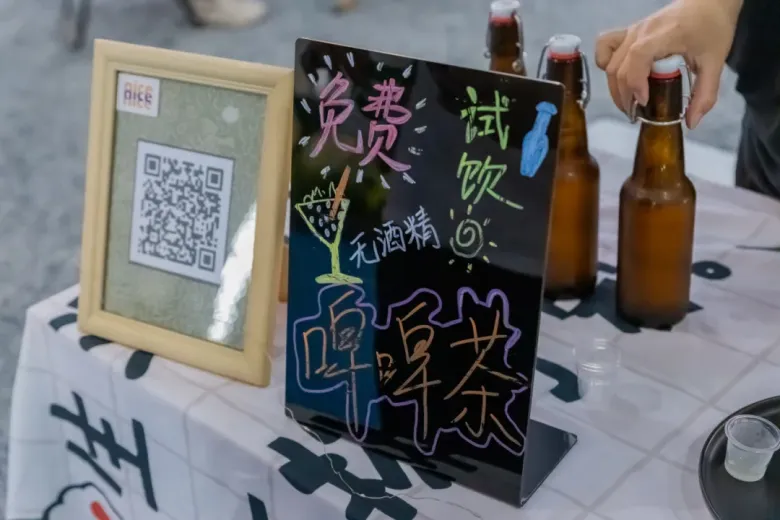 免费
试饮
无酒精
啤啤茶
生